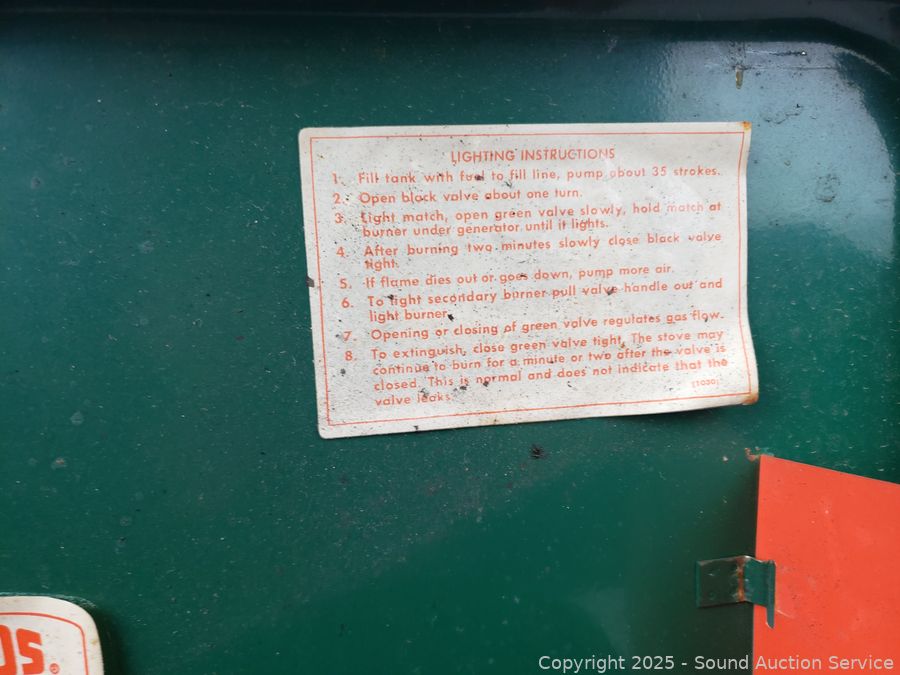 LIGHTING INSTRUCTIONS
1. Fill tank with fuel to fill line, pump about 35 strokes.
2. Open black valve about one turn.
3. Light match, open green valve slowly, hold match at
burner under generator until it lights.
4. After burning two minutes slowly close black valve
tight.
5. If flame dies out or goes down, pump more air.
6. To light secondary burner pull valve handle out and
light burner.
7. Opening or closing of green valve regulates gas flow.
8. To extinguish, close green valve tight. The stove may
continue to burn for a minute or two after the valve is
closed. This is normal and does not indicate that the
valve leaks.
Copyright © 2025 - Sound Auction Service